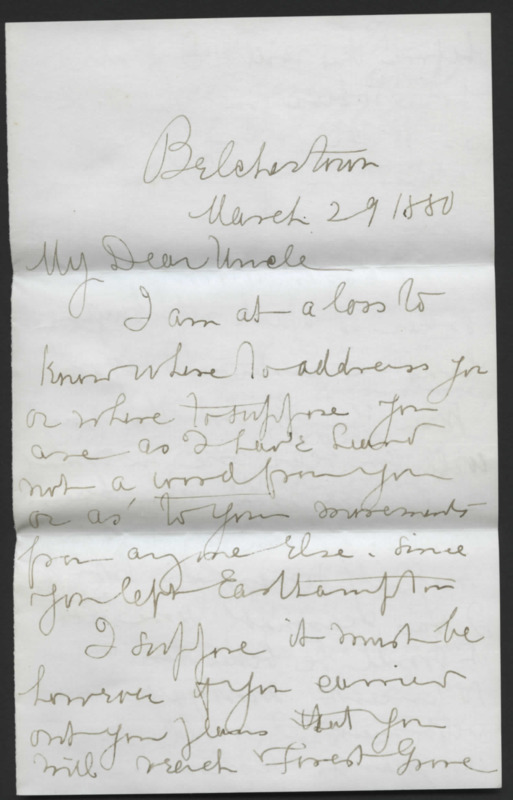 Belchertown
March 29 1880
My Dear Uncle
I am at a loss to
know where to address you
or where to suppose you
are as I have heard
not a word from you
or as to your movements
from any one else. since
you left Easthampton
I suppose it must be
however if you carried
out your plans that you
will reach Forest Grove